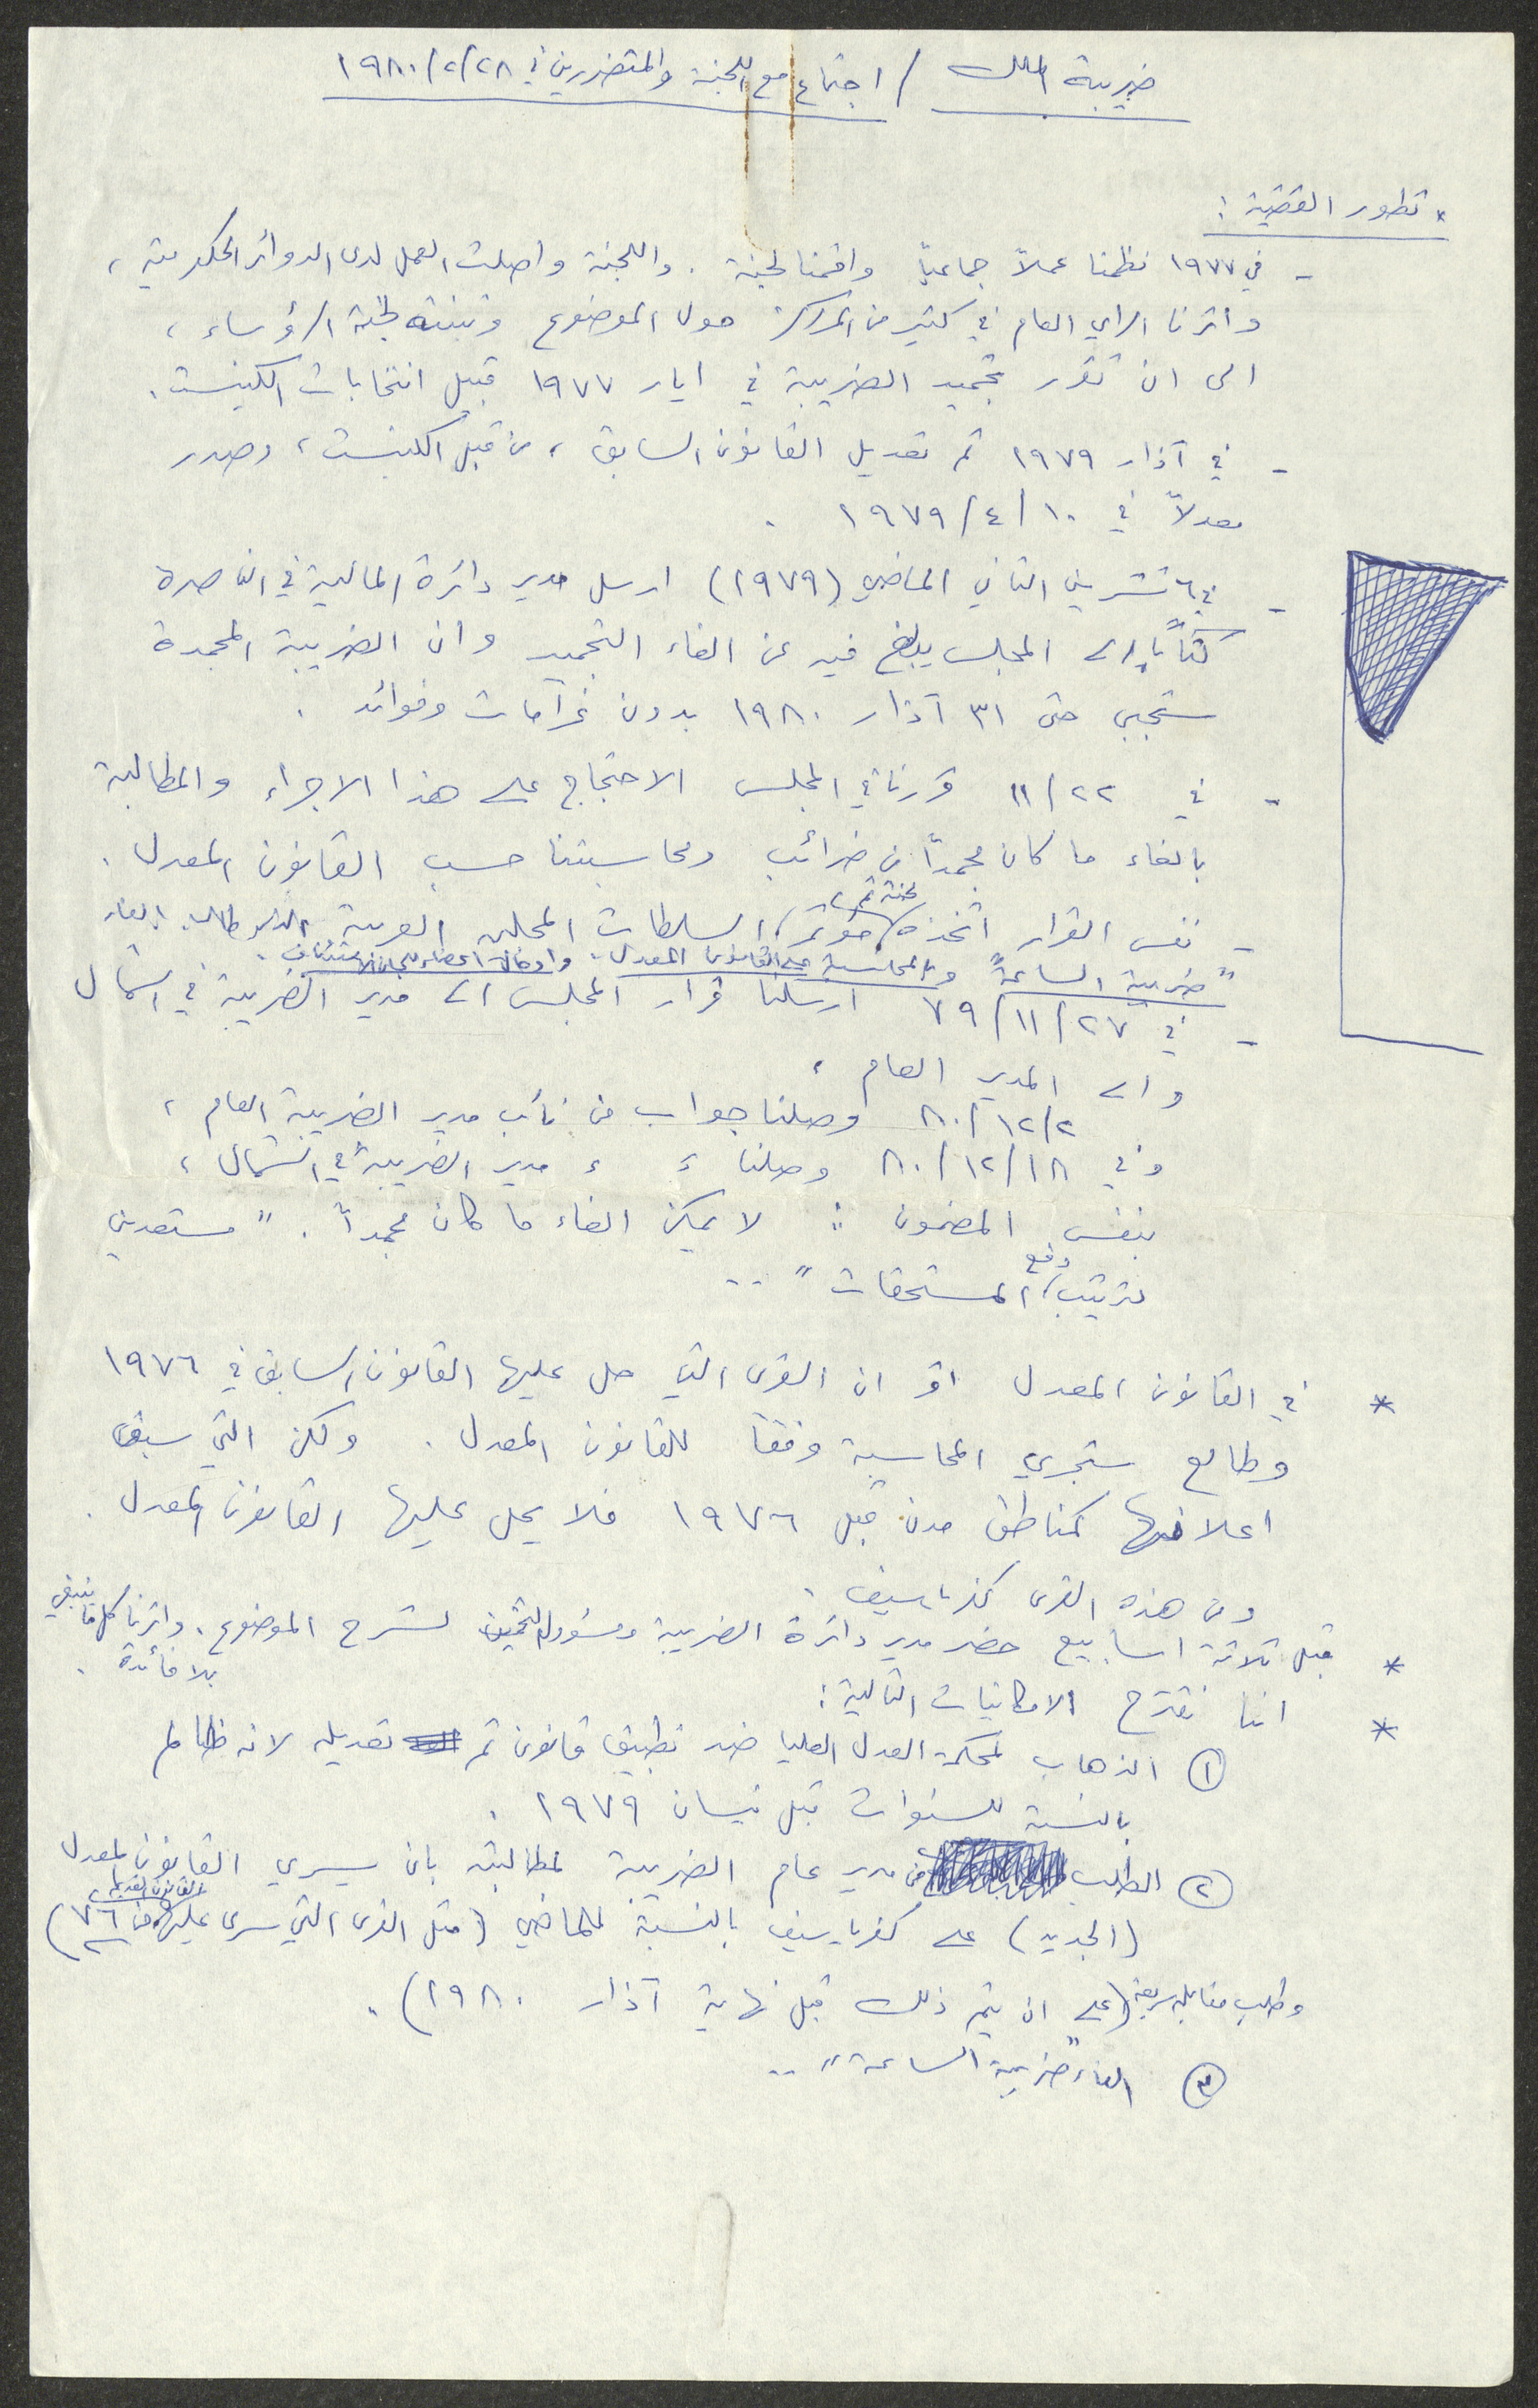 ضريبة الملك / اجتماع مع اللجنة والمتضررين في ٢٨/٢/١٩٨٠
* تطور القضية :
- في ١٩٧٧ نظمنا عملاً جماعياً واقمنا لجنة . واللجنة واصلت العمل لدى الدوائر الحكومية ،
واثرنا الراي العام في كثير من المراكز حول الموضوع وتبنته لجنة الرؤساء ،
الى ان تقرر تجميد الضريبة في ايار ١٩٧٧ قبيل انتخابات الكنيست .
- في آذار ١٩٧٩ تم تعديل القانون السابق ، من قبل الكنيست ، وصدر
معدلاً في ١٠/٤/١٩٧٩ .
- في ٦ تشرين الثاني الماضي (١٩٧٩) ارسل مدير دائرة المالية في الناصرة
كتاباً الى المجلس يبلغ فيه عن الغاء التجميد وان الضريبة المجمدة
ستجبى حتى ٣١ آذار ١٩٨٠ بدون غرامات وفوائد .
- في ٢٢/١١ قررنا في المجلس الاحتجاج على هذا الاجراء والمطالبة
بالغاء ما كان مجمداً من ضرائب ومحاسبتنا حسب القانون المعدل .
- نفس القرار اتخذه مؤتمر السلطات المحلية العربية الذي طالب بالغاء
"ضريبة الساعة" والمحاسبة على القانون المعدل . وادخال اعضاء للجان الاستئناف .
- في ٢٧/١١/٧٩ ارسلنا قرار المجلس الى مدير الضريبة في الشمال
والى المدير العام ،
٢/١٢/٨٠ وصلنا جواب من نائب مدير الضريبة العام ،
وفي ١٨/١٢/٨٠ وصلنا " " مدير الضريبة في الشمال ،
بنفس المضمون : لا يمكن الغاء ما كان مجمداً . " مستعدين
لترتيب دفع المستحقات " ..
* في القانون المعدل اقر ان القرى التي حل عليها القانون السابق في ١٩٧٦
وطالع ستجري المحاسبة وفقاً للقانون المعدل . ولكن التي سبق
اعلانها كمناطق مدن قبل ١٩٧٦ فلا يحل عليها القانون المعدل .
ومن هذه القرى كفرياسيف .
* قبل ثلاثة اسابيع حضر مدير دائرة الضريبة ومسؤول التخمين لشرح الموضوع . واثرنا كل ما ينبغي
بلا فائدة .
* اننا نقترح الامكانيات التالية :
① الذهاب لمحكمة العدل العليا ضد تطبيق قانون تم تعديله لانه ظالم
بالنسبة للسنوات قبل نيسان ١٩٧٩ .
② الطلب من مدير عام الضريبة لمطالبته بان يسري القانون المعدل
(الجديد) على كفرياسيف بالنسبة للماضي (مثل القرى التي سرى عليها القانون القديم من ٧٦)
وطلب مقابلة سريعة (على ان يتم ذلك قبل نهاية آذار ١٩٨٠) .
③ الغاء "ضريبة الساعة" ..